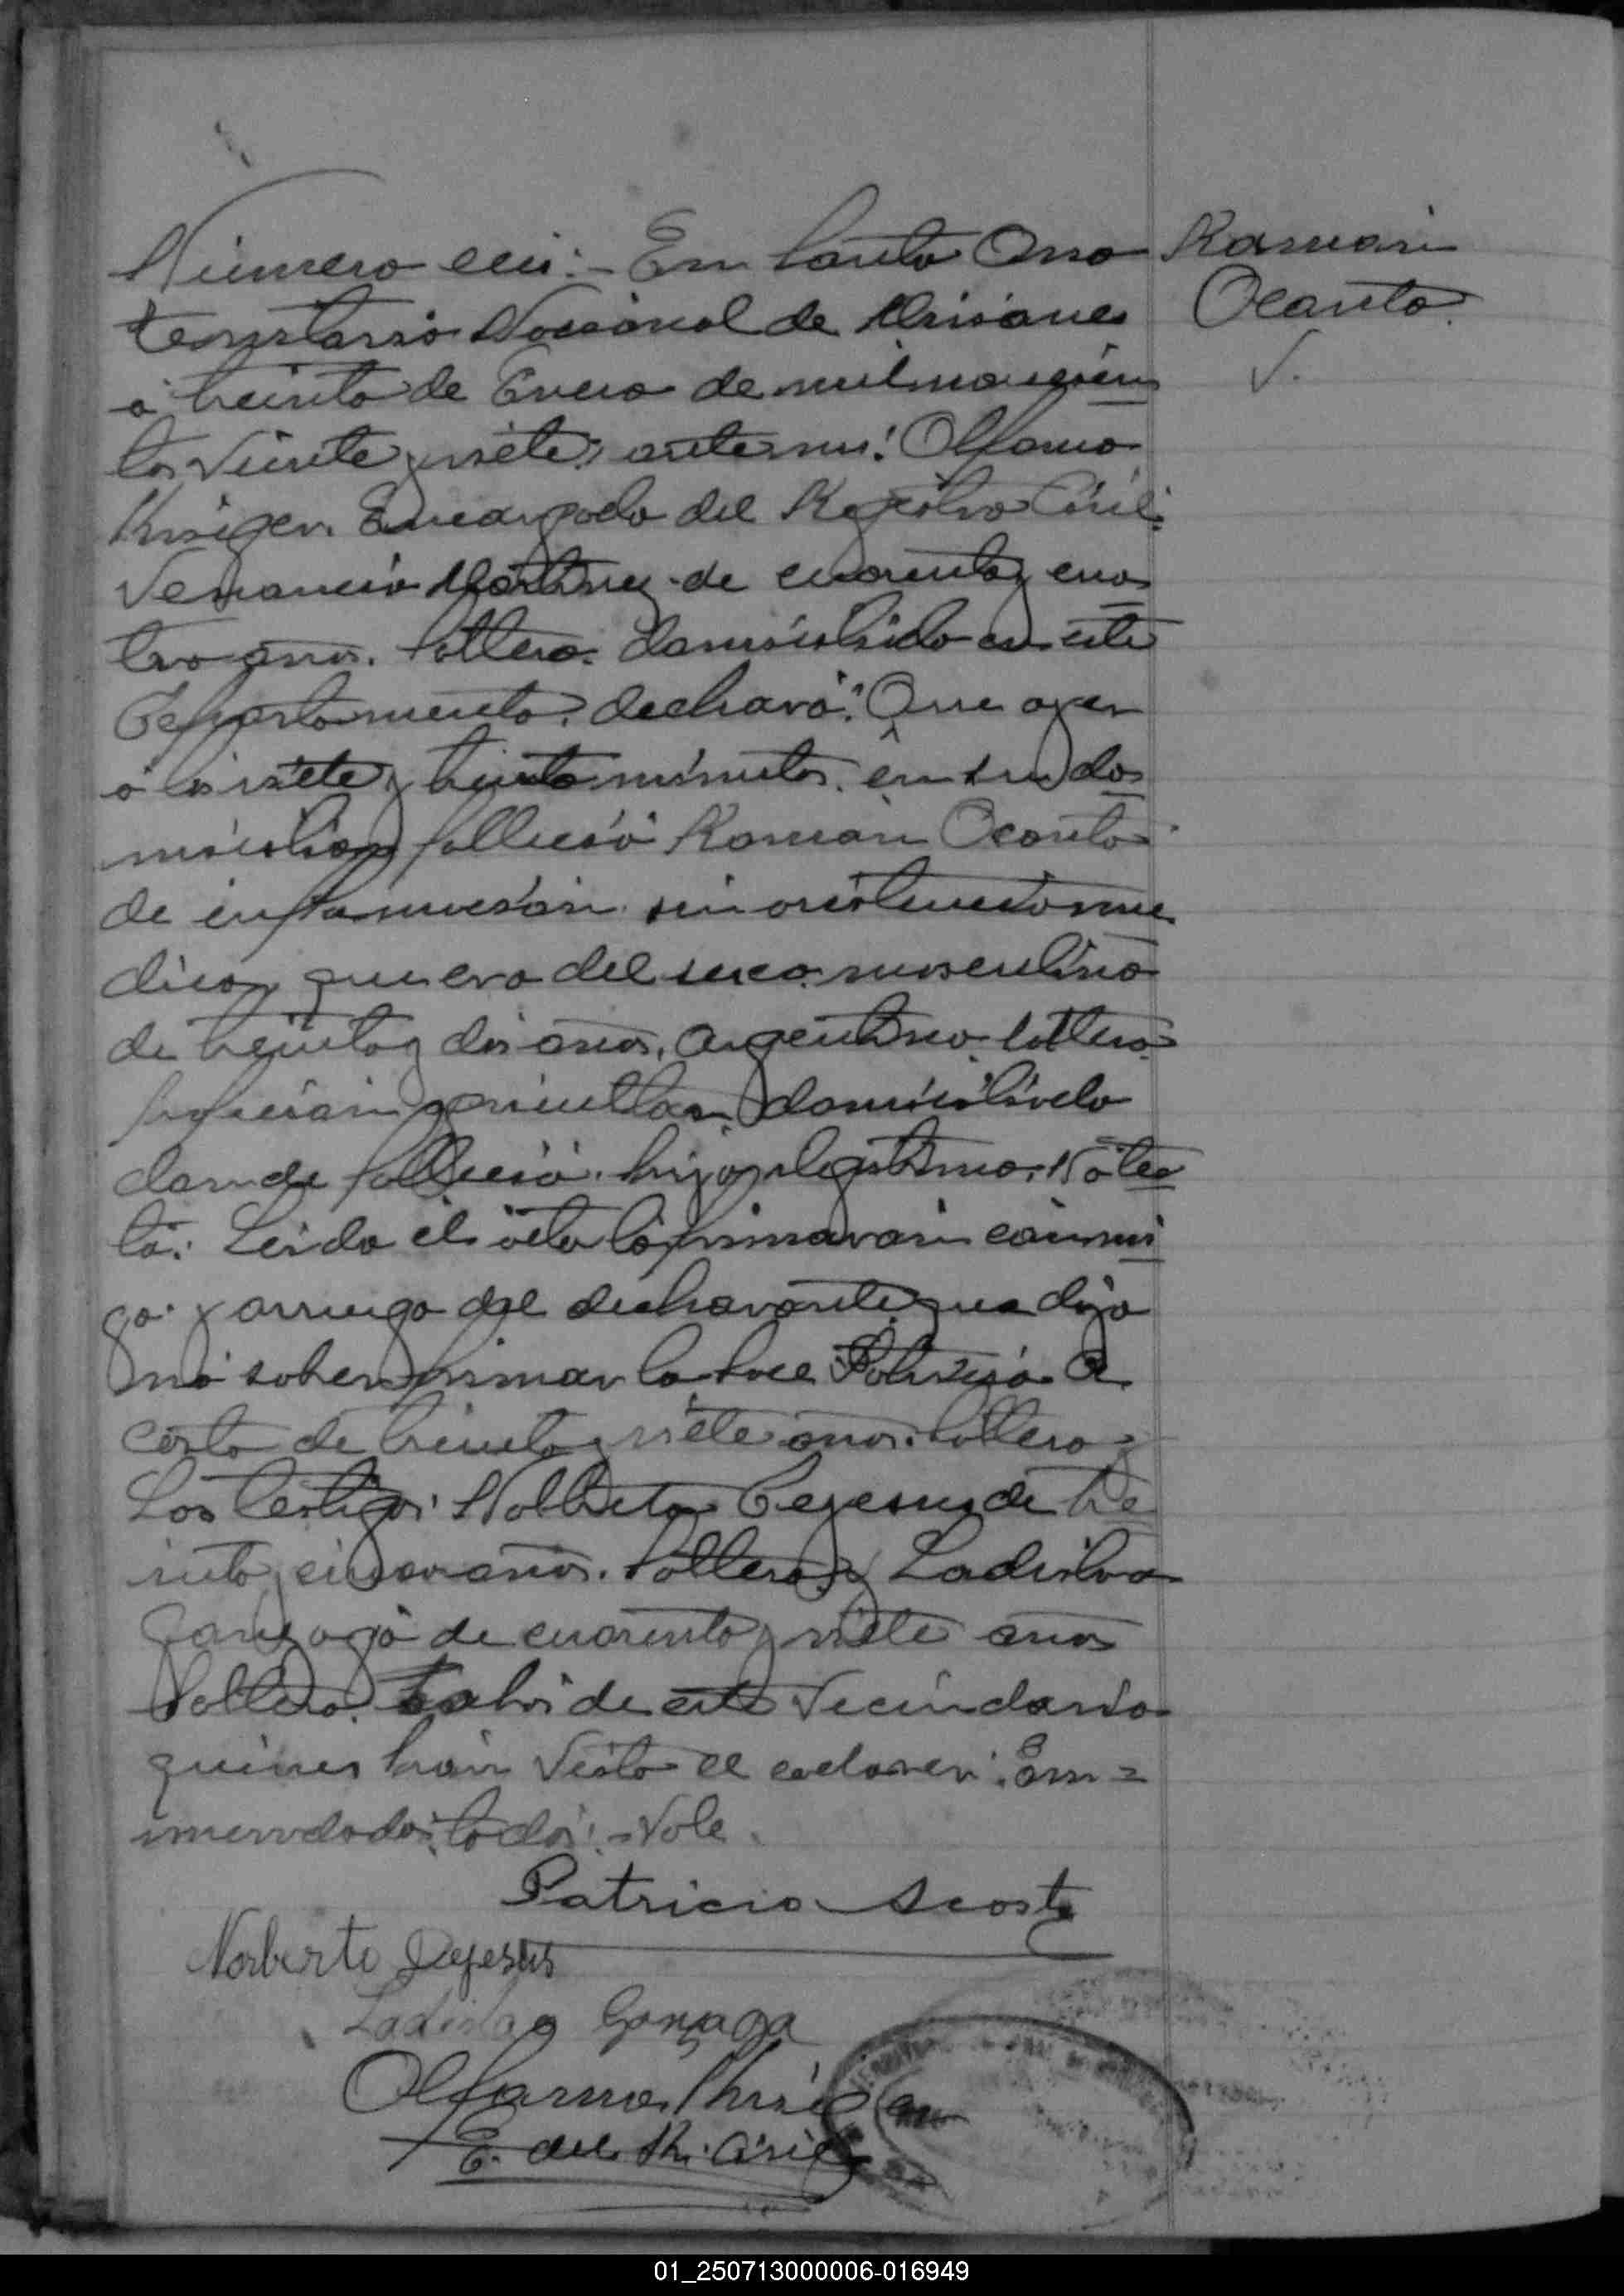 Número seis:- En Santa Ana
Ramón
Ocanto
territorio Nacional de Misiones
á treinta de Enero de mil novecien
tos veinte y siete; ante mi: Olfamo
Encargado del Registro Civil:
Venancio Martinez de cuarenta y cua
tro años. soltero. domiciliado en este
Departamento. declaró: Que ayer
á las siete y treinta minutos. en su do
micilio falleció Ramón Ocanto
de inflamación sin asistencia me
dica y que era del sexo masculino
de treinta y dos años, argentino soltero
profesión domiciliado
donde falleció. hijo legítimo. No tes
tó: Leida el acta la firmaron conmi
go. y a ruego del declarante que dijo
no saber firmar lo hace Patricio A
costa de treinta y siete años. soltero y
Los testigos: Nolberto Dejesus de tre
inta y cinco años. Soltero y Ladislao
Gonzaga de cuarenta y siete años
Soltero. todos de este Vecindario
quienes han visto el cadaver: En=
mendado: todos: -Vale.
Patricio Acosta
Norberto Dejesus
Ladislao Gonzaga
Olfamo
E. del R. Civil
01_250713000006-016949